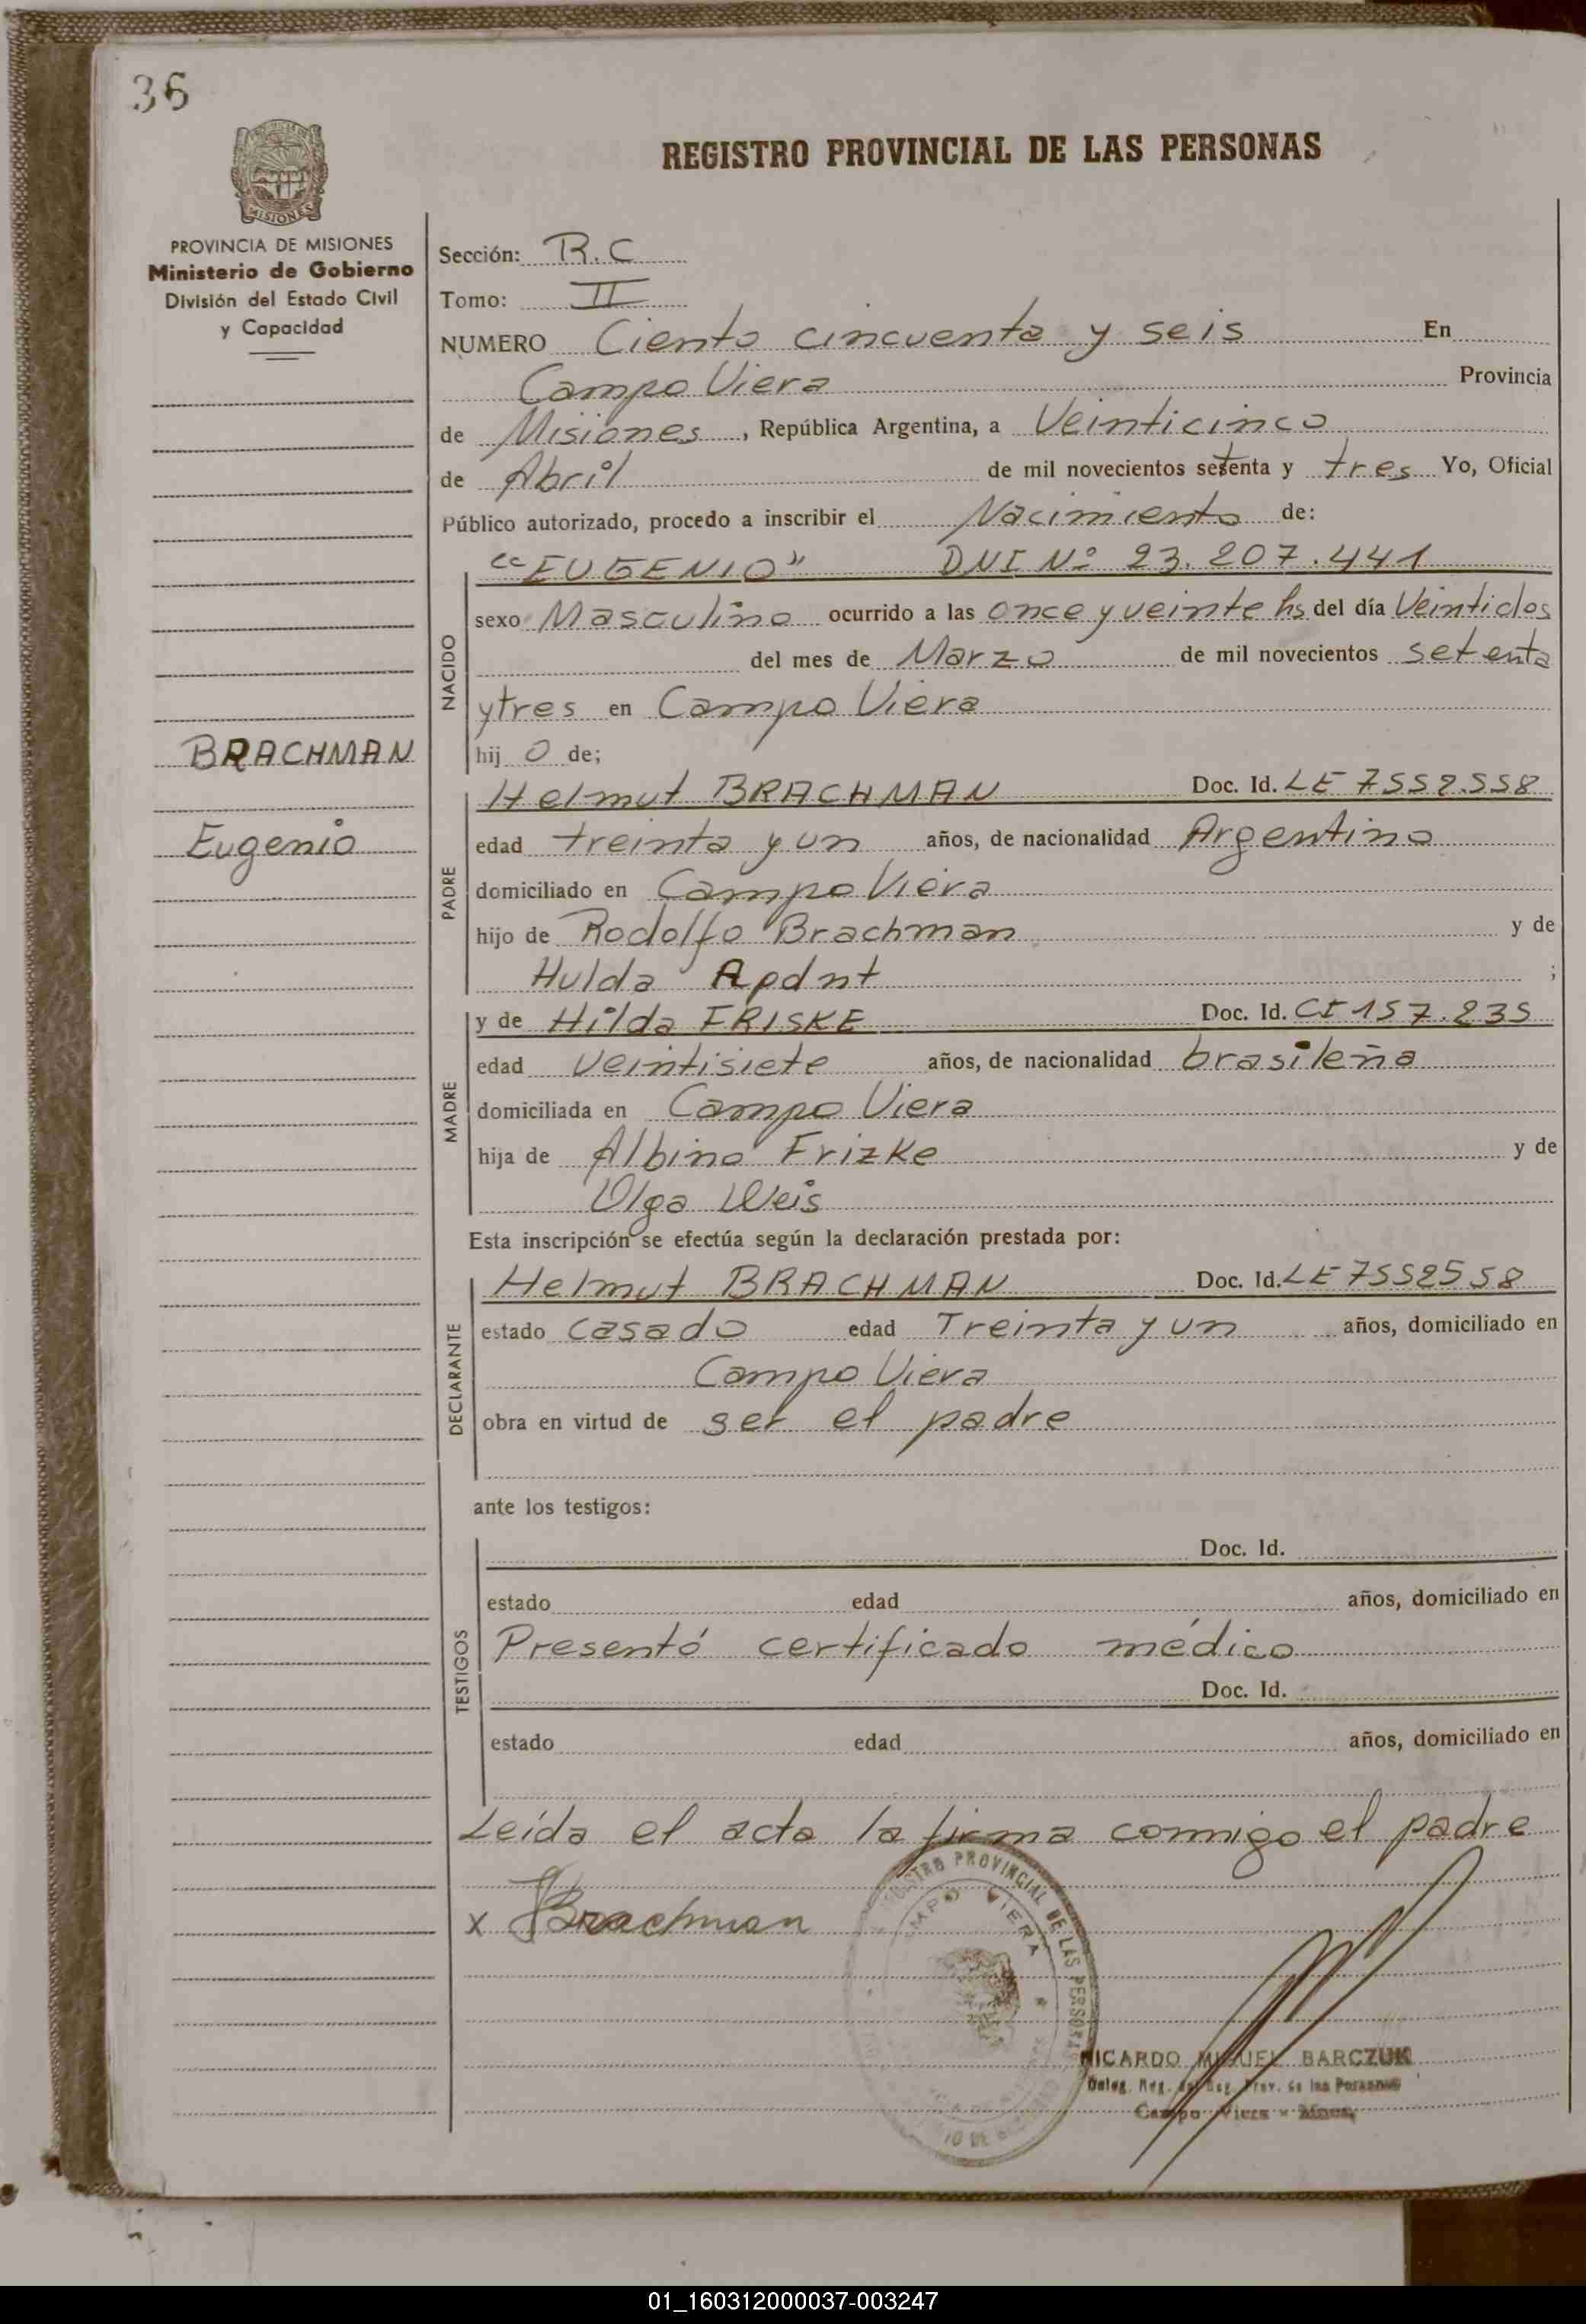 36
MISIONES
PROVINCIA DE MISIONES
Ministerio de Gobierno
División del Estado Civil
y Capacidad
BRACHMAN
Eugenio
REGISTRO PROVINCIAL DE LAS PERSONAS
Sección: R.C
Tomo: II
NUMERO Ciento cincuenta y seis En
Campo Viera Provincia
de Misiones, República Argentina, a Veinticinco
de Abril de mil novecientos setenta y tres Yo, Oficial
Público autorizado, procedo a inscribir el Nacimiento de:
"EUGENIO" DNI Nº 23.207.441
NACIDO
sexo Masculino ocurrido a las once y veinte hs del día Veintidos
del mes de Marzo de mil novecientos setenta
y tres en Campo Viera
hij o de;
PADRE
Helmut BRACHMAN Doc. Id. LE 7552.558
edad treinta y un años, de nacionalidad Argentino
domiciliado en Campo Viera
hijo de Rodolfo Brachman y de
Hulda Apdnt ;
MADRE
y de Hilda FRISKE Doc. Id. CI 157.235
edad veintisiete años, de nacionalidad brasileña
domiciliada en Campo Viera
hija de Albino Frizke y de
Olga Weis
Esta inscripción se efectúa según la declaración prestada por:
DECLARANTE
Helmut BRACHMAN Doc. Id. LE 7552558
estado casado edad Treinta y un años, domiciliado en
Campo Viera
obra en virtud de ser el padre
ante los testigos:
TESTIGOS
Doc. Id.
estado edad años, domiciliado en
Presentó certificado médico
Doc. Id.
estado edad años, domiciliado en
Leída el acta la firma conmigo el padre
x HBrachman
REGISTRO PROVINCIAL DE LAS PERSONAS
CAMPO VIERA
RICARDO MIGUEL BARCZUK
Deleg. Reg. del Reg. Prov. de las Personas
Campo Viera - Mnes.
01_160312000037-003247